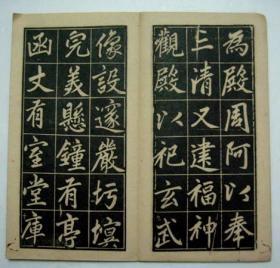 為殿周阿以奉
三清又建福神
觀殿以祀玄武
像設邃嚴圬墁
完美懸鐘有亭
函丈有室堂庫